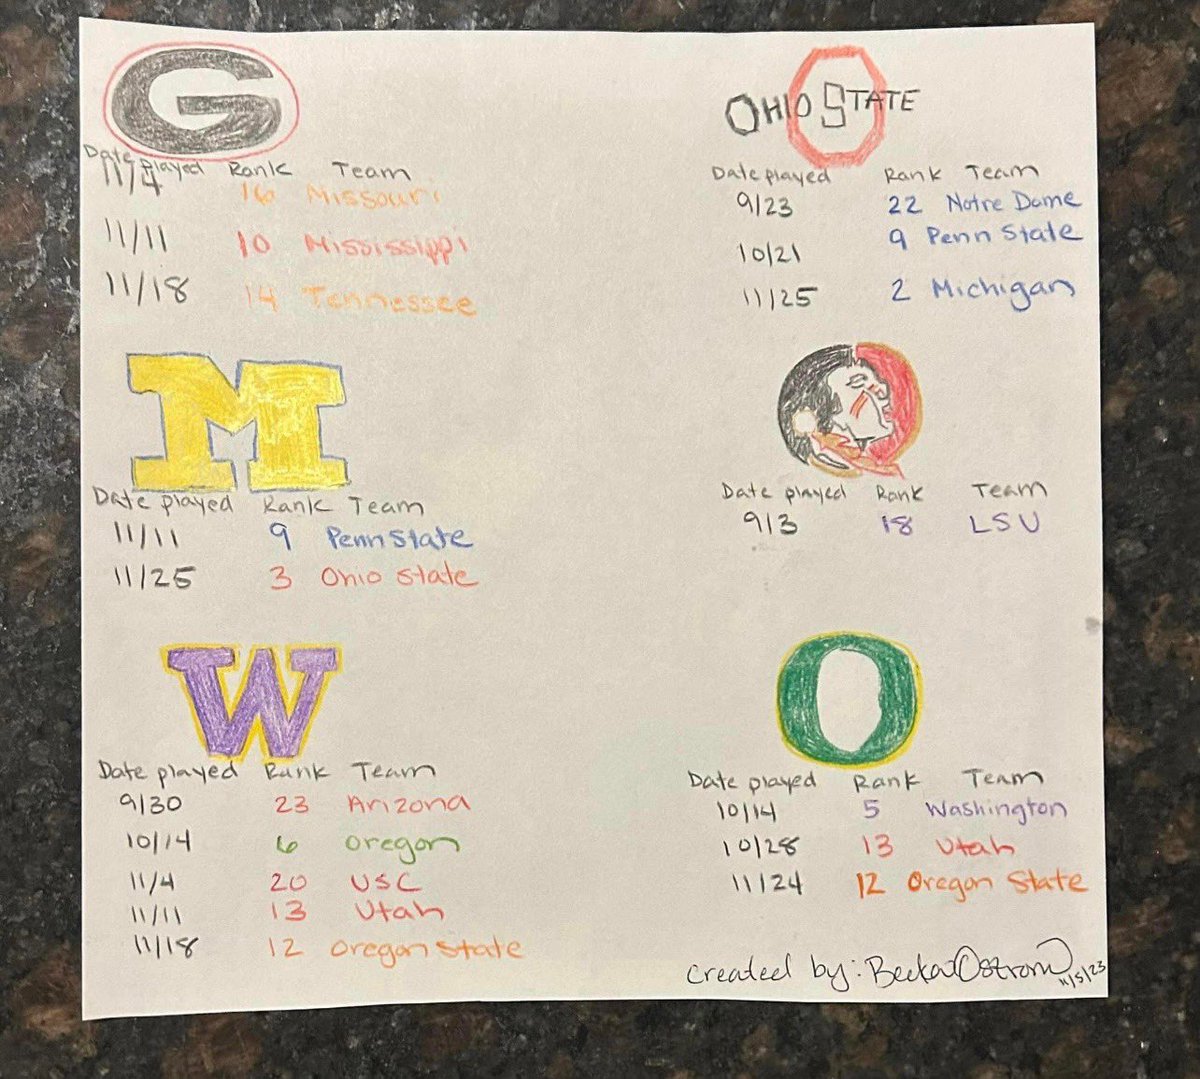 G
Date played Rank Team
11/4 16 Missouri
11/11 10 Mississippi
11/18 14 Tennessee
OHIO STATE
Date played Rank Team
9/23 22 Notre Dame
10/21 9 Penn State
11/25 2 Michigan
M
Date played Rank Team
11/11 9 Penn State
11/25 3 Ohio State
Date played Rank Team
9/3 18 LSU
W
Date played Rank Team
9/30 23 Arizona
10/14 6 Oregon
11/4 20 USC
11/11 13 Utah
11/18 12 Oregon State
O
Date played Rank Team
10/14 5 Washington
10/28 13 Utah
11/24 12 Oregon State
Created by: Becka Ostrom
11/5/23